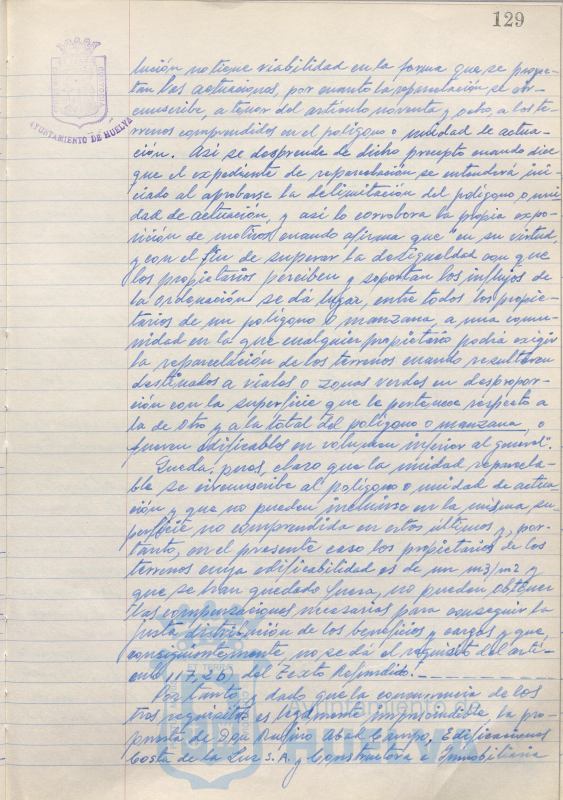 129
AYUNTAMIENTO DE HUELVA
lución no tiene viabilidad en la forma que se proyec-
tan las actuaciones, por cuanto la reparcelación se cir-
cunscribe, a tenor del artículo noventa y ocho, a los te-
rrenos comprendidos en el polígono o unidad de actua-
ción. Así se desprende de dicho precepto cuando dice
que el expediente de reparcelación se entenderá ini-
ciado al aprobarse la delimitación del polígono o uni-
dad de actuación, y así lo corrobora la propia expo-
sición de motivos cuando afirma que "en su virtud,
y con el fin de superar la desigualdad con que
los propietarios perciben y soportan los influjos de
la ordenación se dá lugar, entre todos los propie-
tarios de un polígono o manzana, a una comu-
nidad en la que cualquier propietario podrá exigir
la reparcelación de los terrenos cuando resultaren
destinados a viales o zonas verdes en despropor-
ción con la superficie que le pertenece respecto a
la de otro y a la total del polígono o manzana, o
fueren edificables en volumen inferior al general".
Queda, pues, claro que la unidad reparcela-
ble se circunscribe al polígono o unidad de actua-
ción y que no pueden incluirse en la misma su-
perficie no comprendida en estos últimos y, por-
tanto, en el presente caso los propietarios de los
terrenos cuya edificabilidad es de un m3/m2 y
que se han quedado fuera, no pueden obtener
las compensaciones necesarias para conseguir la
justa distribución de los beneficios y cargas y que,
consiguientemente no se dá el requisito del artí-
culo 117,2b, del Texto Refundido.
Por tanto y dado que la concurrencia de los
tres requisitos es legalmente imprescindible, la pro-
puesta de Don Rufino Abad Campo, Edificaciones
Costa de la Luz S.A. y Constructora e Inmobiliaria
Ayuntamiento de
HUELVA